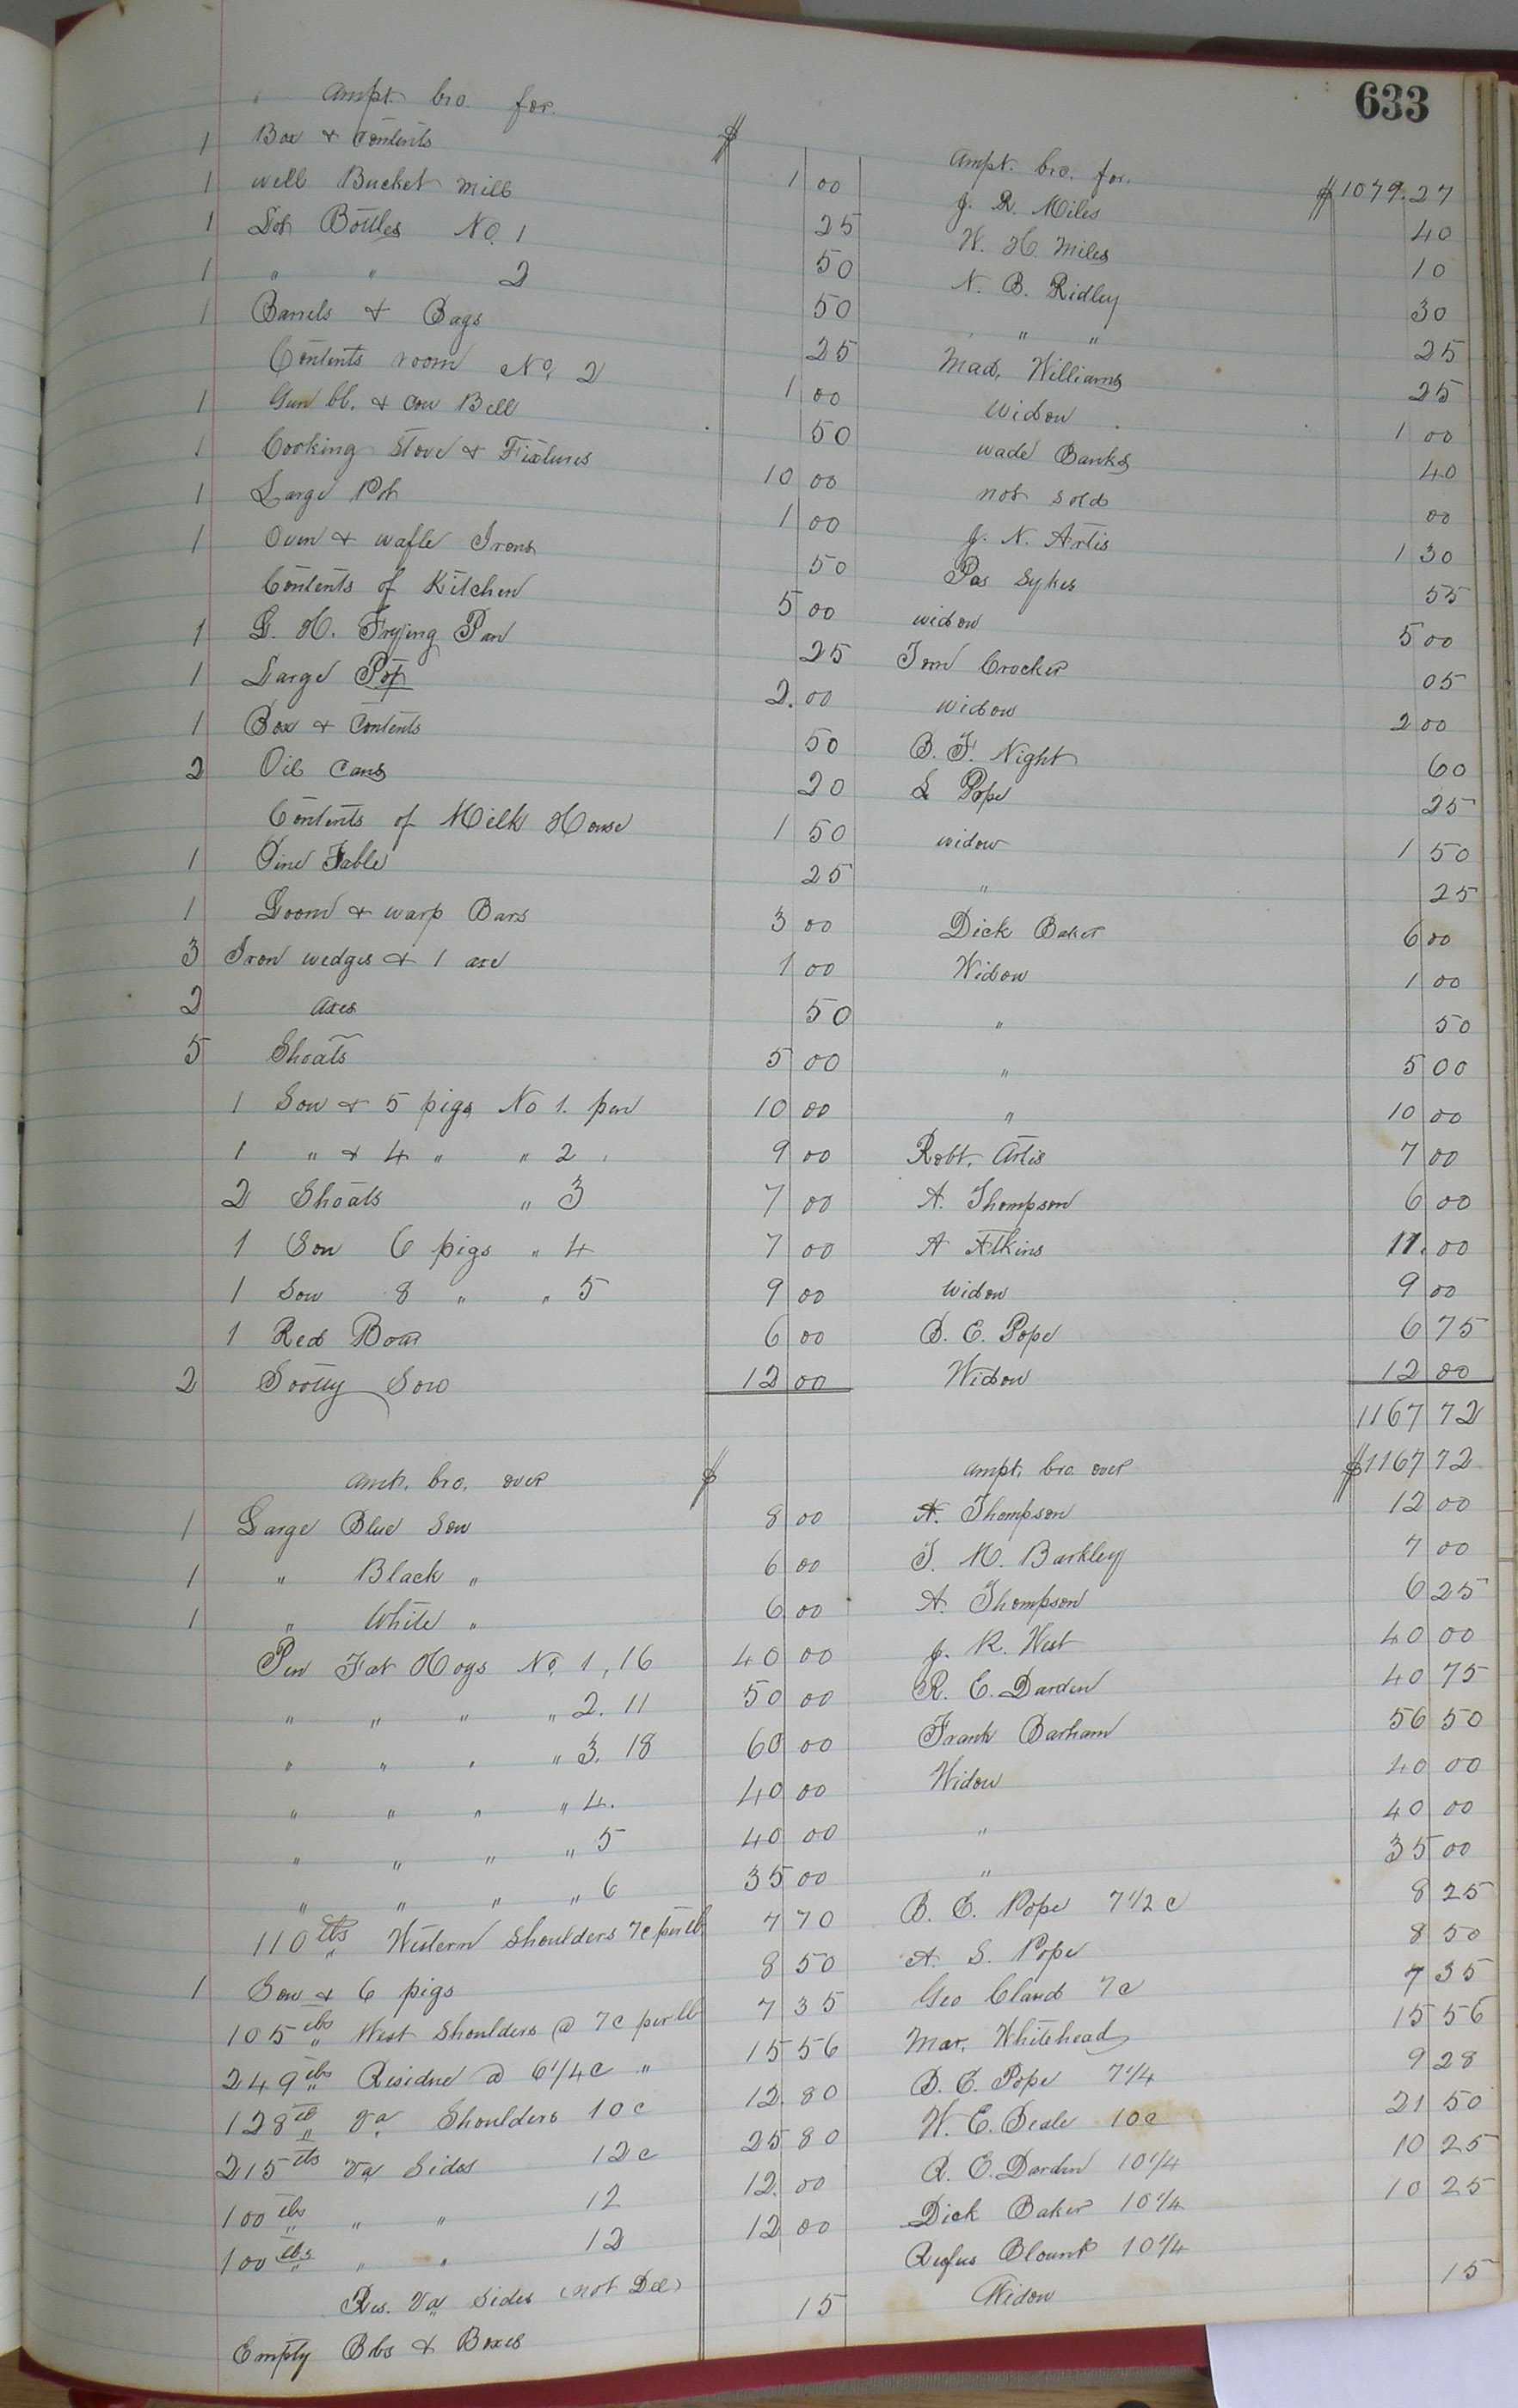 633
Ampt. bro. for. $ Ampt. bro. for. $1079.27
1 Box & Contents 1 00 J. R. Miles 40
1 well Bucket Mill 25 W. H. Miles 10
1 Lot Bottles No. 1 50 N. B. Ridley 30
1 " " 2 50 " " 25
1 Barrels & Bags 25 Mad. Williams 25
Contents room No. 2 1 00 Widow 1 00
1 Gun bl. & Cow Bell 50 Wade Banks 40
1 Cooking Stove & Fixtures 10 00 not sold 00
1 Large Pot 1 00 J. N. Artis 1 30
1 Oven & wafle Irons 50 Pas Sykes 55
Contents of Kitchen 5 00 widow 5 00
1 L. H. Frying Pan 25 Tom Crocker 05
1 Large Pot 2.00 widow 2 00
1 Box & Contents 50 B. F. Night 60
2 Oil Cans 20 L Pope 25
Contents of Milk House 1 50 widow 1 50
1 Pine Table 25 " 25
1 Loom & warp Bars 3 00 Dick Baker 6 00
3 Iron wedges & 1 axe 1 00 Widow 1 00
2 axes 50 " 50
5 Shoats 5 00 " 5 00
1 Sow & 5 pigs No 1. pen 10 00 " 10 00
1 " & 4 " " 2 " 9 00 Robt. Artis 7 00
2 Shoats " 3 7 00 A. Thompson 6 00
1 Sow 6 pigs " 4 7 00 A Atkins 11.00
1 Sow 8 " " 5 9 00 Widow 9 00
1 Red Boar 6 00 B. E. Pope 6 75
2 Sow 12 00 Widow 12 00
1167 72
Amt. bro. over $ Ampt. bro over $1167 72
1 Large Blue Sow 8 00 A. Thompson 12 00
1 " Black " 6 00 T. M. Barkley 7 00
1 " White " 6.00 A. Thompson 6 25
Pen Fat Hogs No. 1, 16 40 00 J. R. West 40 00
" " " " 2. 11 50 00 R. E. Darden 40 75
" " " " 3. 18 60 00 Frank Barham 56 50
" " " " 4. 40 00 Widow 40 00
" " " " 5 40 00 " 40 00
" " " " 6 35 00 " 35 00
110 lbs Western Shoulders 7c per lb 7 70 B. E. Pope 7 1/2 c 8 25
1 Sow & 6 pigs 8 50 A. S. Pope 8 50
105 lbs West Shoulders @ 7c per lb 7 35 Geo Claud 7c 7 35
249 lbs Residue @ 6 1/4 c " 15 56 Mar. Whitehead 15 56
128 lb Va Shoulders 10c 12.80 B. E. Pope 7 1/4 9 28
215 lbs Va Sides 12c 25 80 W. E. Beale 10c 21 50
100 lbs " " 12 12.00 R. E. Darden 10 1/4 10 25
100 lbs " " 12 12 00 Dick Baker 10 1/4 10 25
Res. Va Sides (not Del) Rufus Blount 10 1/4
Empty Bbs & Boxes 15 Widow 15